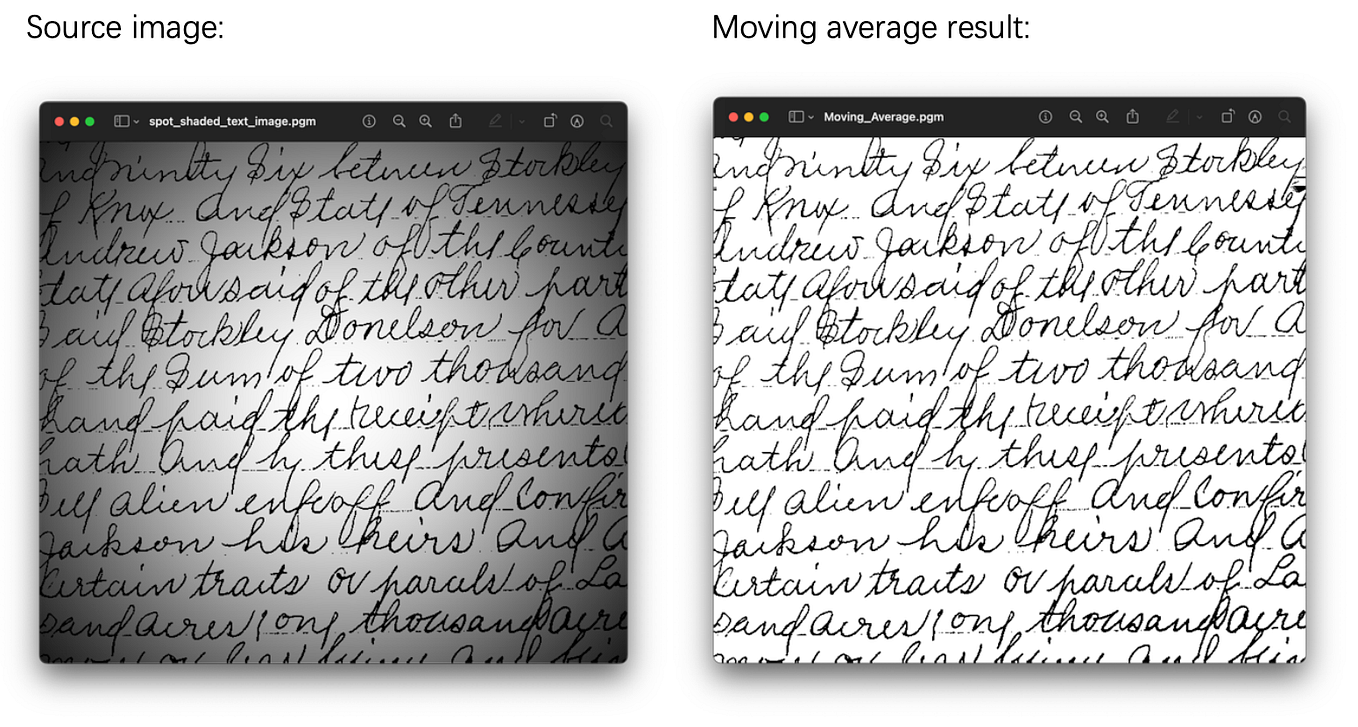 Source image:
Moving average result:
spot_shaded_text_image.pgm
ind Ninity Six between Stockley
of Knox And State of Tennessey
Andrew Jackson of the Count
tate aforesaid of the other part
said Stockley Donelson for a
of the Sum of two thousand
hand paid the receipt where
hath And by these presents
sell alien enfeoff And Confir
Jackson his heirs And a
Certain traits or parcels of La
sand acres one thousand acre
Moving_Average.pgm
ind Ninity Six between Stockley
of Knox And State of Tennessey
Andrew Jackson of the Count
tate aforesaid of the other part
said Stockley Donelson for a
of the Sum of two thousand
hand paid the receipt where
hath And by these presents
sell alien enfeoff And Confir
Jackson his heirs And a
Certain traits or parcels of La
sand acres one thousand acre